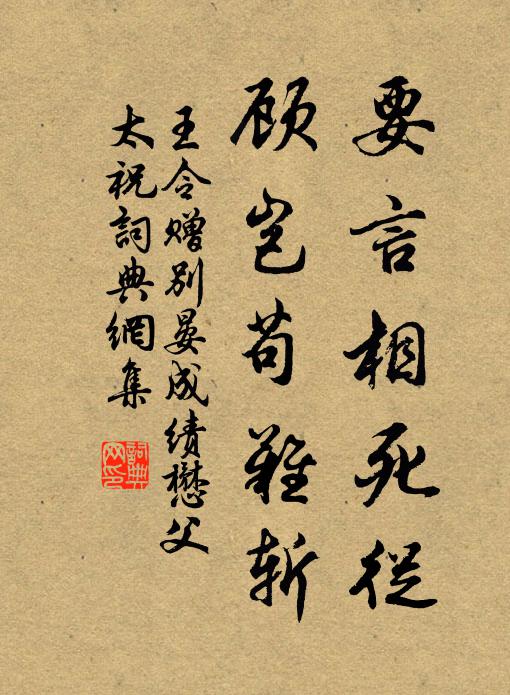 要言相死從
顾岂苟難斩
王令赠别晏成绩懋父
太祝詞典網集
詞典網印